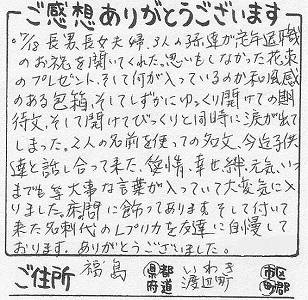 ご感想ありがとうございます
長男、長女夫婦、3人の孫達が定年退職
のお祝を開いてくれた。思いもしなかった花束
のプレゼント、そして何が入っているのか和風感
のある包箱、そしてしずかにゆっくり開けての期
待文、そして開けてびっくりと同時に涙が出て
しまった。2人の名前を使っての名文、今迄子供
達と話し合って来た、愛情、幸せ、絆、元気、いつ
までも等大事な言葉が入っていて大変気に入
りました。床間に飾ってあります。そして付いて
来た名刺代のレプリカを友達に自慢して
おります。ありがとうございました。
ご住所 福島 都道府県 いわき 市区町郡
渡辺町